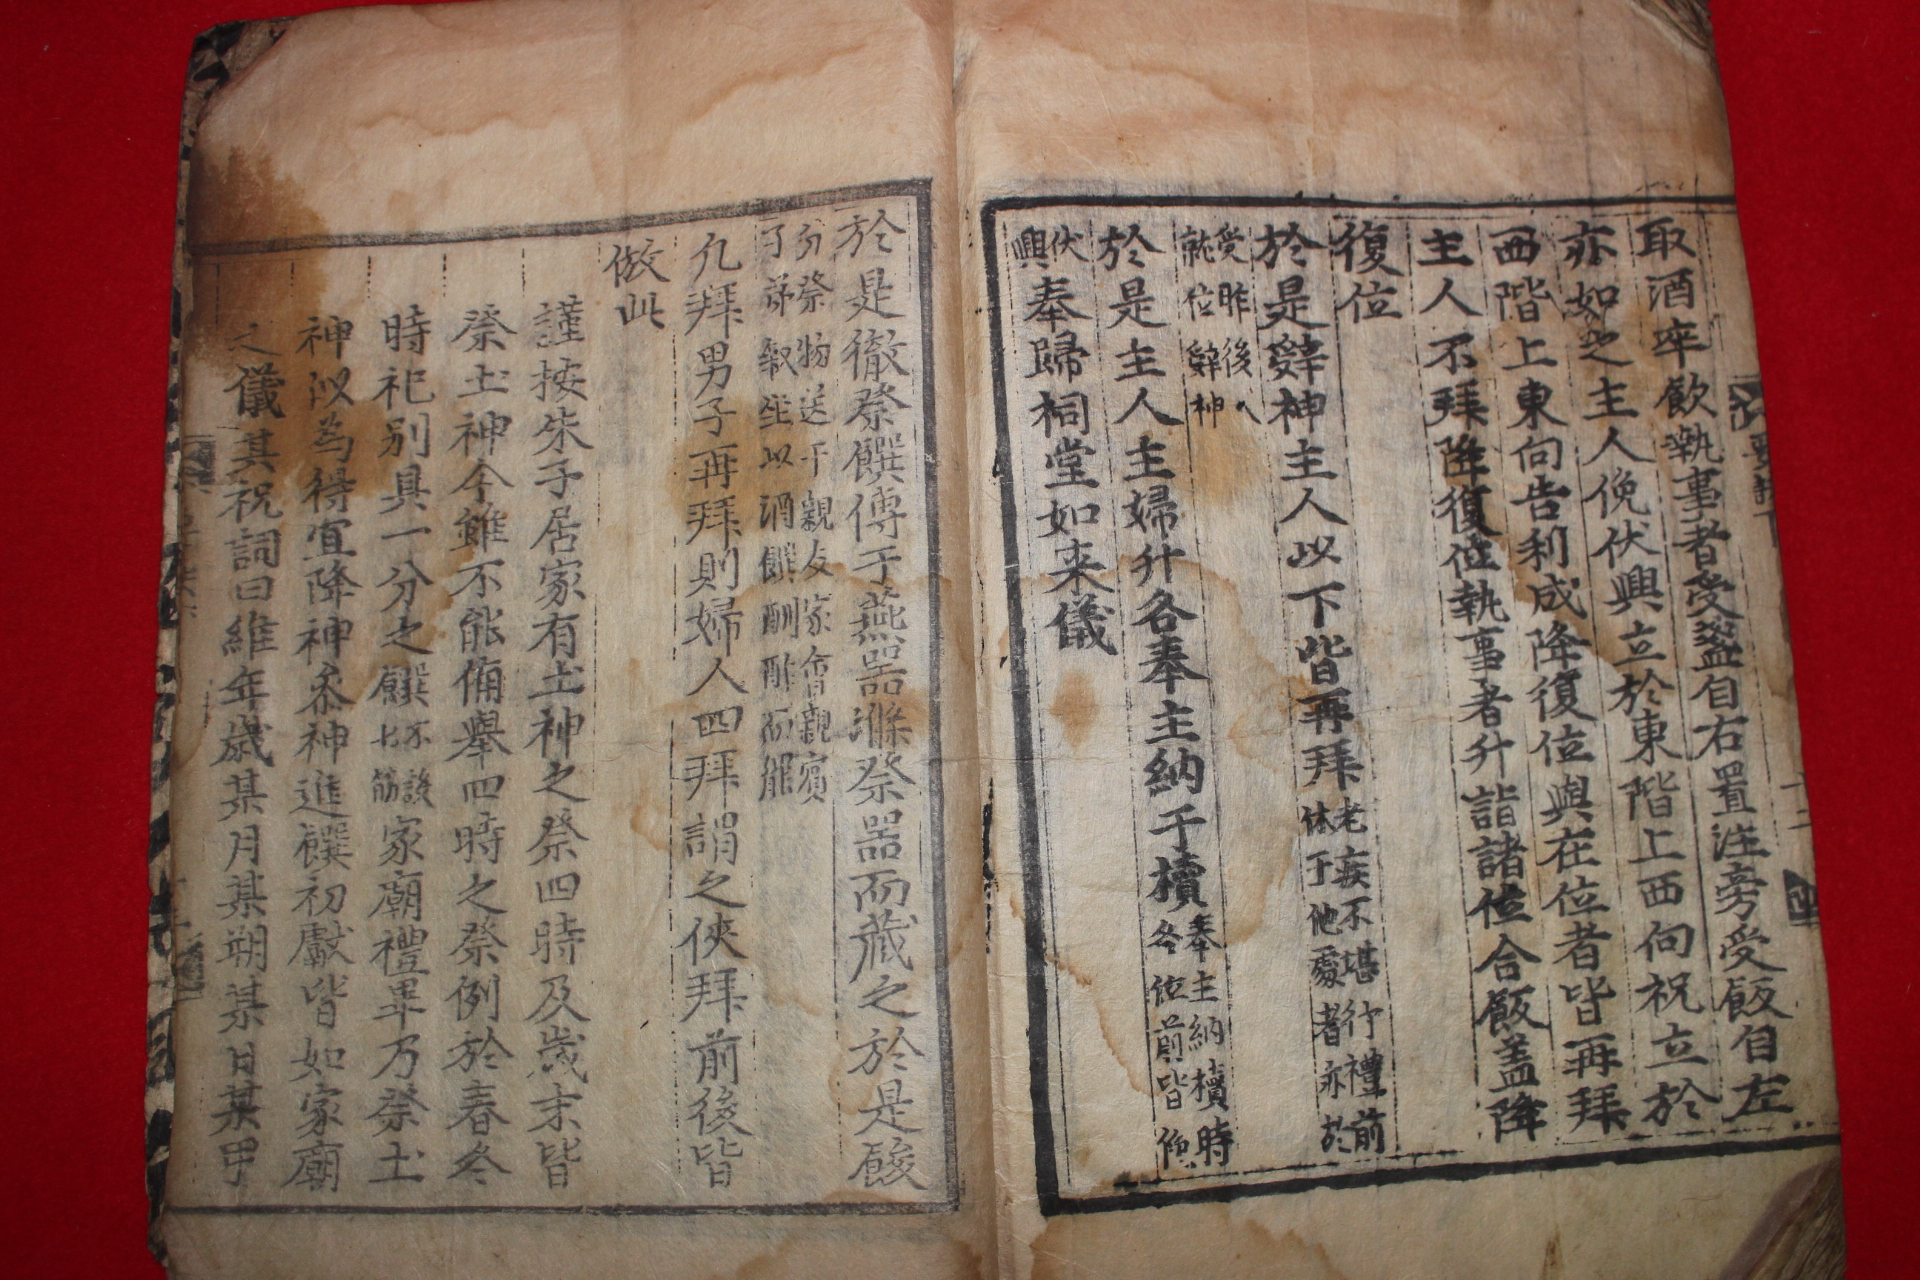 取酒卒飮執事者受盞自右置注旁受飯自左
亦如之主人俛伏興立於東階上西向祝立於
西階上東向告利成降復位與在位者皆再拜
主人不拜降復位執事者升詣諸位合飯盖降
復位
於是辭神主人以下皆再拜
老疾不堪行禮前
休于他處者亦於
受胙後入
就位辭神
於是主人主婦升各奉主納于櫝
奉主納櫝時
各位前皆俛
伏
興
奉歸祠堂如来儀
於是徹祭饌傳于燕器滌祭器而藏之於是餕
分祭物送于親友家會親賓
子弟叙坐以酒饌酬酢而罷
凢拜男子再拜則婦人四拜謂之俠拜前後皆
倣此
謹按朱子居家有土神之祭四時及歲末皆
祭土神今雖不能俻舉四時之祭例於春冬
時祀別具一分之饌
不設
匕筯
家廟禮畢乃祭土
神似為得宜降神參神進饌初獻皆如家廟
之儀其祝詞曰維年歲某月某朔某日某甲